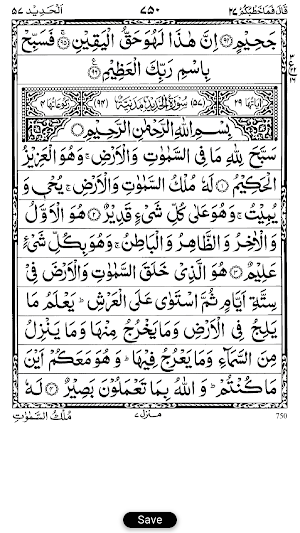 قَالَ فَمَا خَطْبُكُمْ ٢٧
٧٥٠
اَلْحَدِيْد ٥٧
جَحِيْمٍ ﴿٩٤﴾ اِنَّ هٰذَا لَهُوَ حَقُّ الْيَقِيْنِ ﴿٩٥﴾ فَسَبِّحْ
بِاسْمِ رَبِّكَ الْعَظِيْمِ ﴿٩٦﴾
اٰيَاتُهَا ٢٩
(٥٧) سُوْرَةُ الْحَدِيْدِ مَدَنِيَّةٌ (٩٤)
رُكُوْعَاتُهَا ٤
بِسْمِ اللّٰهِ الرَّحْمٰنِ الرَّحِيْمِ
سَبَّحَ لِلّٰهِ مَا فِى السَّمٰوٰتِ وَالْاَرْضِ ۚ وَهُوَ الْعَزِيْزُ
الْحَكِيْمُ ﴿١﴾ لَهٗ مُلْكُ السَّمٰوٰتِ وَالْاَرْضِ ۚ يُحْىٖ وَ
يُمِيْتُ ۚ وَهُوَ عَلٰى كُلِّ شَىْءٍ قَدِيْرٌ ﴿٢﴾ هُوَ الْاَوَّلُ
وَالْاٰخِرُ وَالظَّاهِرُ وَالْبَاطِنُ ۚ وَهُوَ بِكُلِّ شَىْءٍ
عَلِيْمٌ ﴿٣﴾ هُوَ الَّذِىْ خَلَقَ السَّمٰوٰتِ وَالْاَرْضَ فِىْ
سِتَّةِ اَيَّامٍ ثُمَّ اسْتَوٰى عَلَى الْعَرْشِ ؕ يَعْلَمُ مَا
يَلِجُ فِى الْاَرْضِ وَمَا يَخْرُجُ مِنْهَا وَمَا يَنْزِلُ
مِنَ السَّمَآءِ وَمَا يَعْرُجُ فِيْهَا ؕ وَهُوَ مَعَكُمْ اَيْنَ
مَا كُنْتُمْ ؕ وَاللّٰهُ بِمَا تَعْمَلُوْنَ بَصِيْرٌ ﴿٤﴾ لَهٗ
مُلْكُ السَّمٰوٰتِ
منزل ٧
750
Save